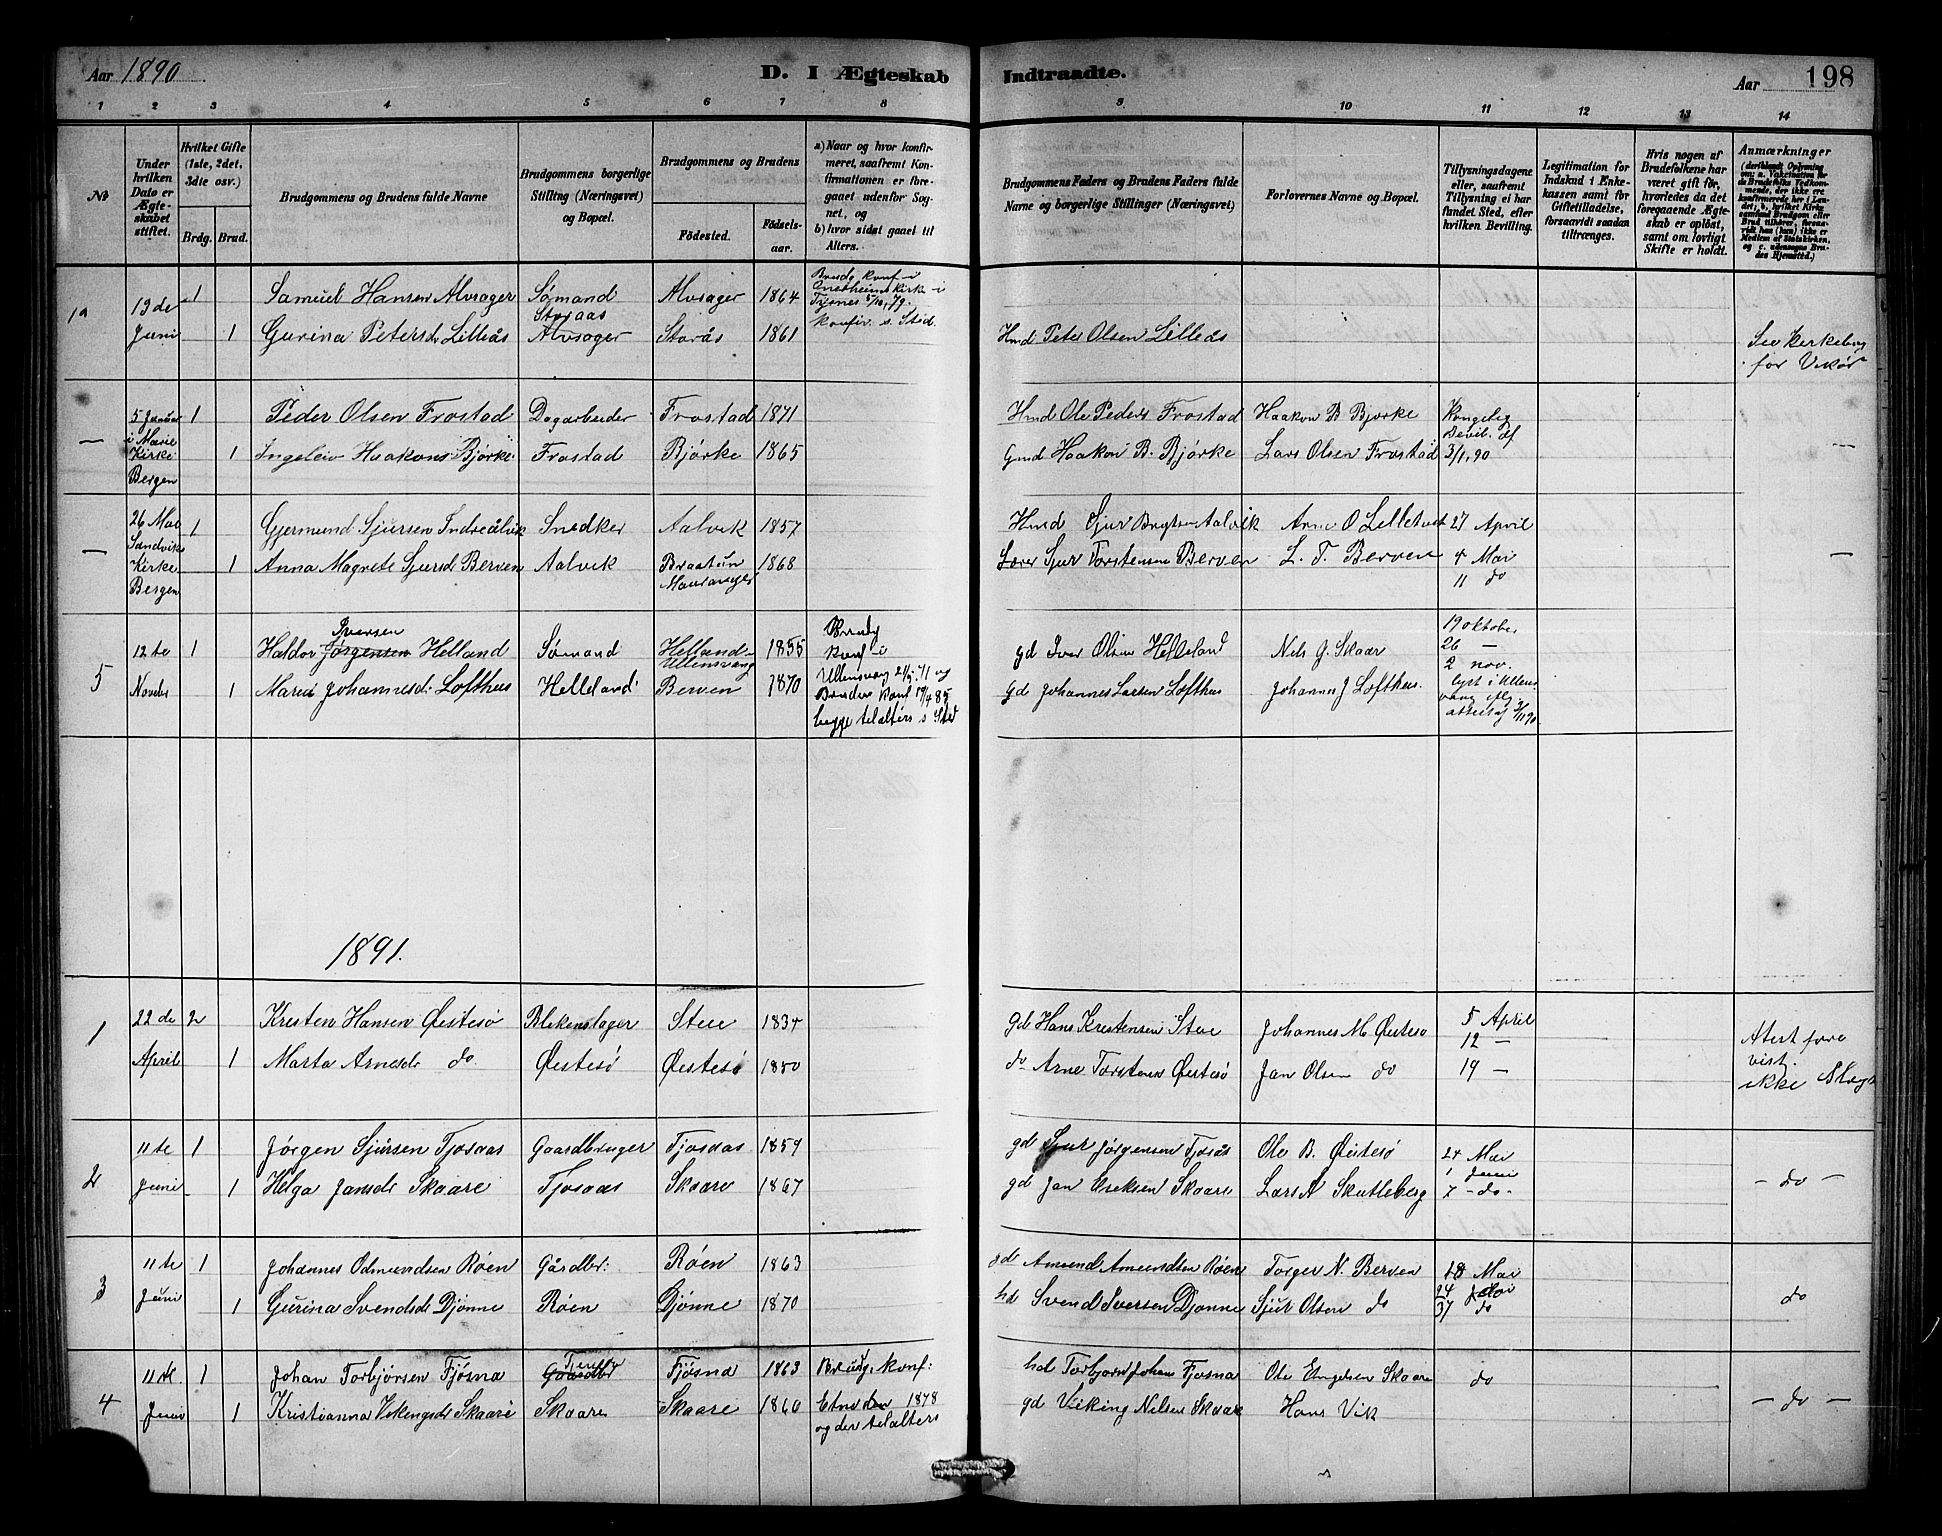 Aar 1890
D. I Ægteskab Indtraadte.
Aar 198
1 2 3 4 5 6 7 8 9 10 11 12 13 14
No
Under hvilken Dato er Ægteskabet stiftet.
Hvilket Gifte (1ste, 2det, 3die osv.)
Brdg. Brud.
Brudgommens og Brudens fulde Navne
Brudgommens borgerlige Stilling (Næringsvei) og Bopæl.
Brudgommens og Brudens
Fødested.
Fødselsaar.
a) Naar og hvor konfirmeret, saafremt Konfirmationen er foregaaet udenfor Sognet, og
b) hvor sidst gaaet til Alters.
Brudgommens Faders og Brudens Faders fulde Navne og borgerlige Stillinger (Næringsvei)
Forlovernes Navne og Bopæl.
Tillysningsdagene eller, saafremt Tillysning ei har fundet Sted, efter hvilken Bevilling.
Legitimation for Indskud i Enkekassen samt for Giftetilladelse, forsaavidt saadan tiltrænges.
Hvis nogen af Brudefolkene har været gift før, hvorledes da det foregaaende Ægteskab er opløst, samt om lovligt Skifte er holdt.
Anmærkninger
13 de 1 Samuel Hansen Alvsager Sømand Alvsager 1864 Brudg. konf. i
Storaas
Juni 1 Gurina Petersd. Lilleås Alvsager Storås 1861 konfir. s. Sted.
Hmd Peter Olsen Lilleås
See Kirkebog for Vikør
5 Januar i Marie Kirke Bergen
1 Peder Olsen Frostad Dagarbeider Frostad 1871 Hmd Ole Peders Frostad Haakon B Bjørke Kongelig Bevil. af
1 Ingeleiv Haakons Bjørke Frostad Bjørke 1865 Gmd Haakon B. Bjørke Lars Olsen Frostad 3/1, 90
26 Mai Sandviks Kirke Bergen
1 Gjermund Sjursen Indreålvik Snedker Aalvik 1857 Hmd Sjur Aalvik Arne O Lilletvet 27 April
1 Anna Magrete Sjursd Berven Aalvik Braatun Mauranger 1868 Lærer Sjur Torstensen Berven L. T. Berven 4 Mai
11 do
5 12te 1 Haldor Jørgensen Iversen Helland Sømand Helland Ullensvang 1855 Brudg konf i Ullensvang 71 og
Novbr 1 Mari Johannesd. Lofthus Helleland Berven 1870 Bruden konf 19/4 85 begge tilalters s Sted
gd Iver Olsen Helleland Nels G. Skaar 19 oktober
26 —
2 nov.
gd Johannes Larsen Lofthus Johannes J Lofthus. lyst i Ullensvang
1891.
1 22 de 2 Kristen Hansen Øistesø Blikenslager Steie 1834 gd Hans Kristensen Steie Johannes M. Øistesø 5 April
12 —
April 1 Marta Arnesd. do Øistesø Øistesø 1850 do Arne Torstens Øistesø Jan Olsen do 19 —
Atest forevist. ikke Slægt
2 11te 1 Jørgen Sjursen Tjosaas Gaardbruger Tjosaas 1859 gd Sjur Jørgensen Tjosås Ole B. Øistesø 24 Mai
Juni 1 Helga Jansd. Skaare Tjosaas Skaare 1867 gd Jan Eriksen Skaare Lars N Skutleberg 1 Juni
7 — do —
— do —
3 11te 1 Johannes Odmundsen Røen Gårdbr: Røen 1863 gd Amund Amundsen Røen Torger N. Berven 18 Mai
24 do
Juni 1 Gurina Svendsd. Djønne Røen Djønne 1870 hd Svend Iversen Djønne Sjur Olsen do 37 do
do
4 11te 1 Johan Torbjørsen Fjøsna Gaardbr Fjøsna 1863 Brudg. konf:
Juni 1 Kristianna Vikingsd. Skaare Skaare Skaare 1860 Etne den 1878 og der tilalters
hd Torbjørn Johan Fjøsna Ole Engelsen Skaare do
gd Viking Nilsen Skaar Hans Vik
— do —